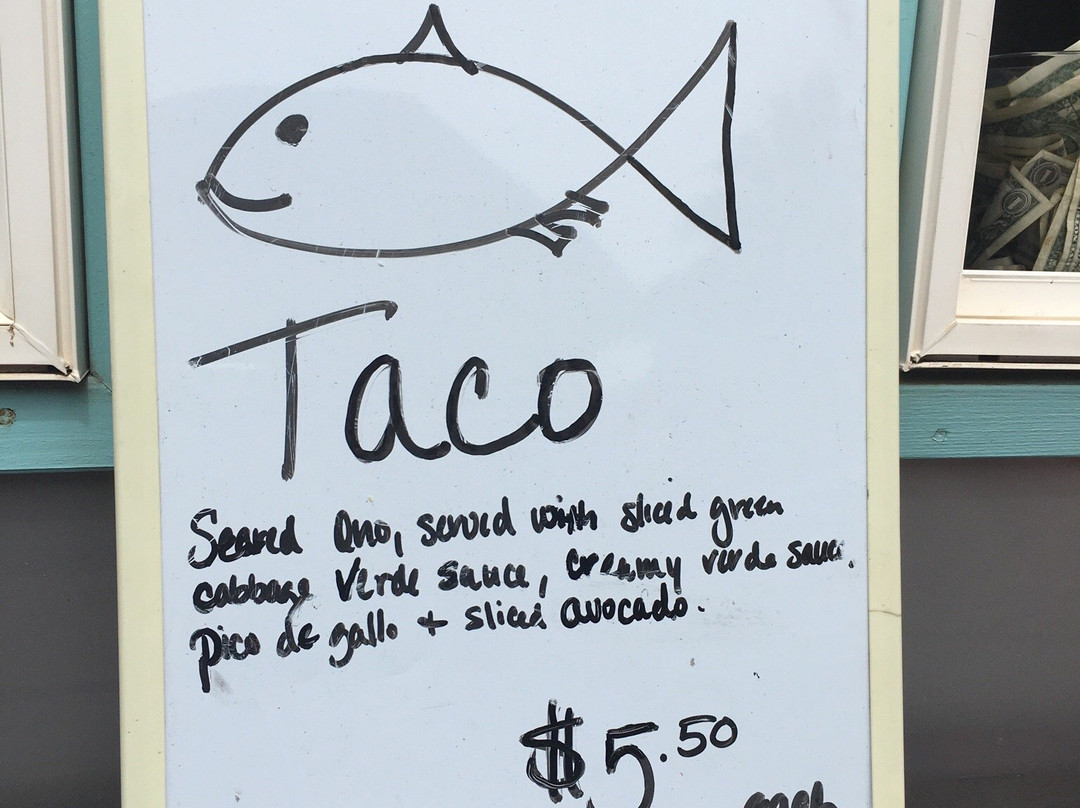 Taco
Seared Ono, served with sliced green
cabbage verde sauce, creamy verde sauce,
pico de gallo + sliced avocado.
$5.50
each